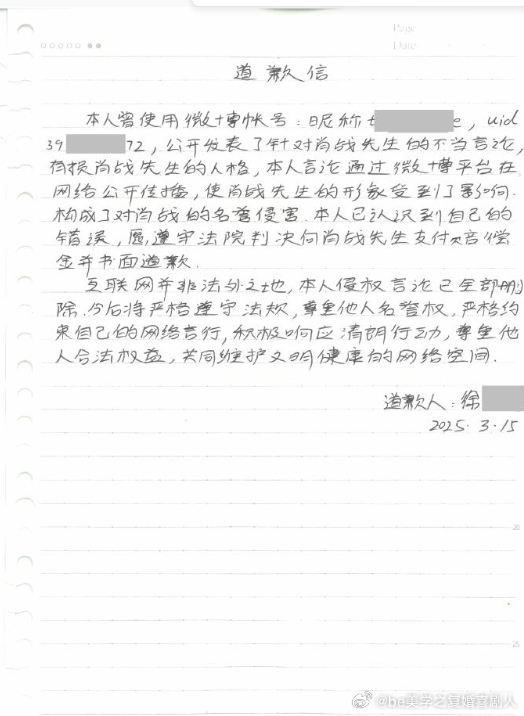 Page
Date
道歉信
本人曾使用微博帐号：昵称t e，uid
39 72，公开发表了针对肖战先生的不当言论，
有损肖战先生的人格，本人言论通过微博平台在
网络公开传播，使肖战先生的形象受到了影响.
构成了对肖战的名誉侵害.本人已认识到自己的
错误，愿遵守法院判决向肖战先生支付赔偿
金并书面道歉.
互联网并非法外之地，本人侵权言论已全部删
除.今后将严格遵守法规，尊重他人名誉权，严格约
束自己的网络言行，积极响应清朗行动，尊重他
人合法权益，共同维护文明健康的网络空间.
道歉人：徐
2025.3.15
20
25
@be美学之复婚喜剧人